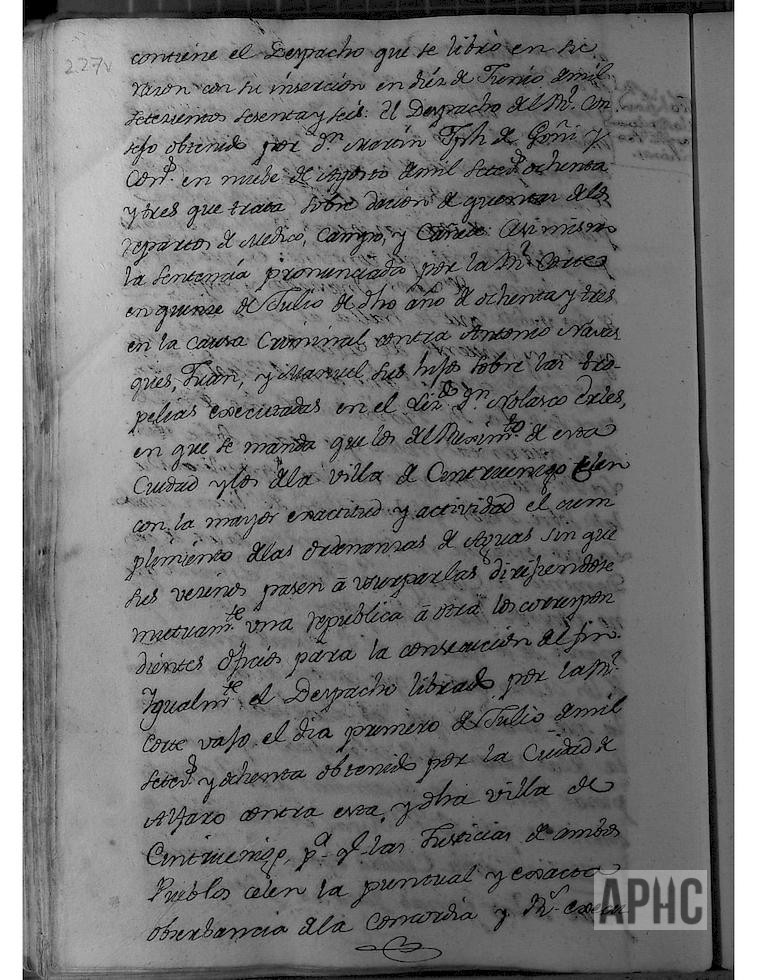 227v
contiene el Despacho que se libro en su
razon con su insercion en diez de Junio de mil
setecientos sesenta y seis. El Despacho del Rl. Con
sejo obtenido por Dn. Martin Jph de Goñi y
Conp. en nuebe de Agosto de mil setecs. ochenta
y tres que trata sobre dacion de quentas de los
repartos de Medico, Campo, y Cañete. Asi mismo
la Sentencia pronunciada por la Rl. Corte
en quinze de Julio de dho año de ochenta y tres
en la causa Criminal contra Antonio
Juan, y Manuel sus hijos sobre las tro-
pelias executadas en el Lizdo. Dn. Nolasco
en que se manda que los del Reximto. de esta
Ciudad y los de la villa de Cintruenigo celen
con la mayor exactitud y actividad el cum
plimiento de las ordenanzas de Aguas sin que
sus vezinos pasen â usurparlas dirijiendose
mutuamte. una republica â otra los correspon
dientes oficios para la consecucion del fin.
Igualmte. el Despacho librado por la Rl.
Corte vajo el dia primero de Julio de mil
setecs. y ochenta obtenido por la Ciudad de
Alfaro contra esta, y dha villa de
Cintruenigo, pa. qe. las Justicias de ambos
Pueblos celen la puntual y exacta
obserbancia de la Concordia y Rl. execu
APHC